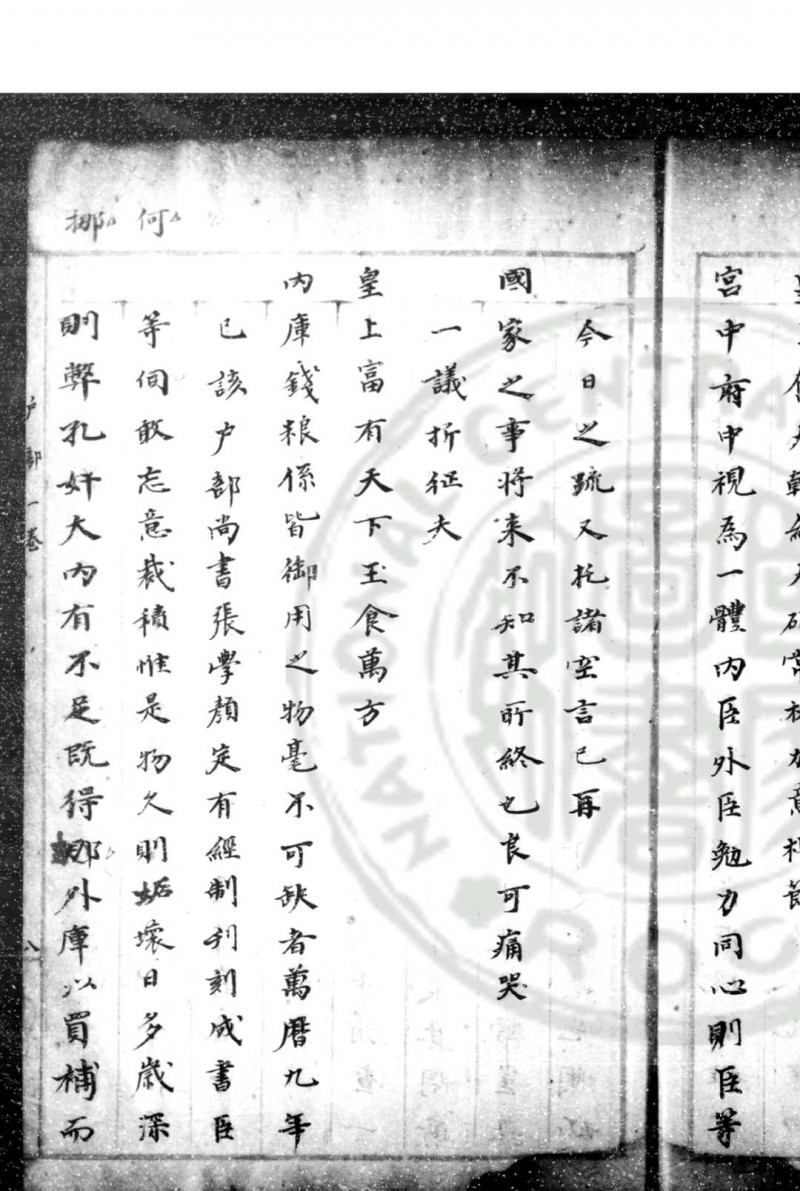 宮中府中視為一體內臣外臣勉力同心則臣等
今日之疏又托諸空言已再
國家之事將來不知其所終也良可痛哭
一議折征夫
皇上富有天下玉食萬方
內庫錢粮係皆御用之物毫不可缺者萬曆九年
已該户部尚書張學顏定有經制刋刻成書臣
等伺敢忘意裁積惟是物久則蚯壞日多歲深
則弊孔奸大內有不足既得挪外庫以買補而
何
挪
户部一卷
八
NATIONAL CENTRAL
ROC